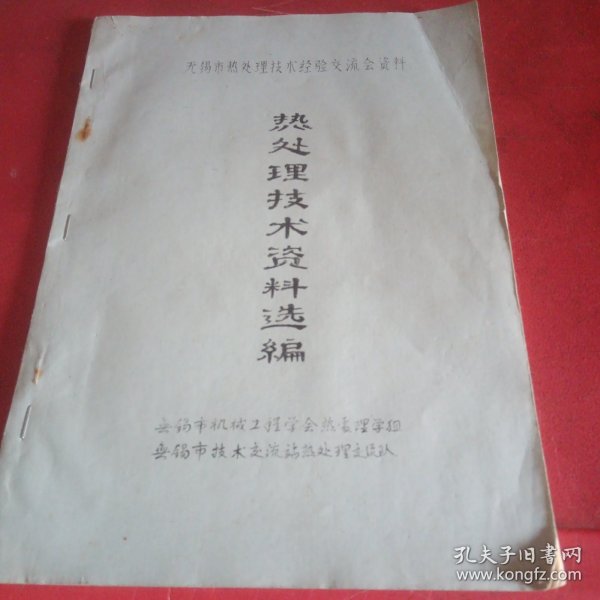 无锡市热处理技术经验交流会资料
热处理技术资料选编
无锡市机械工程学会热处理学组
无锡市技术交流站热处理交流队
孔夫子旧书网
www.kongfz.com